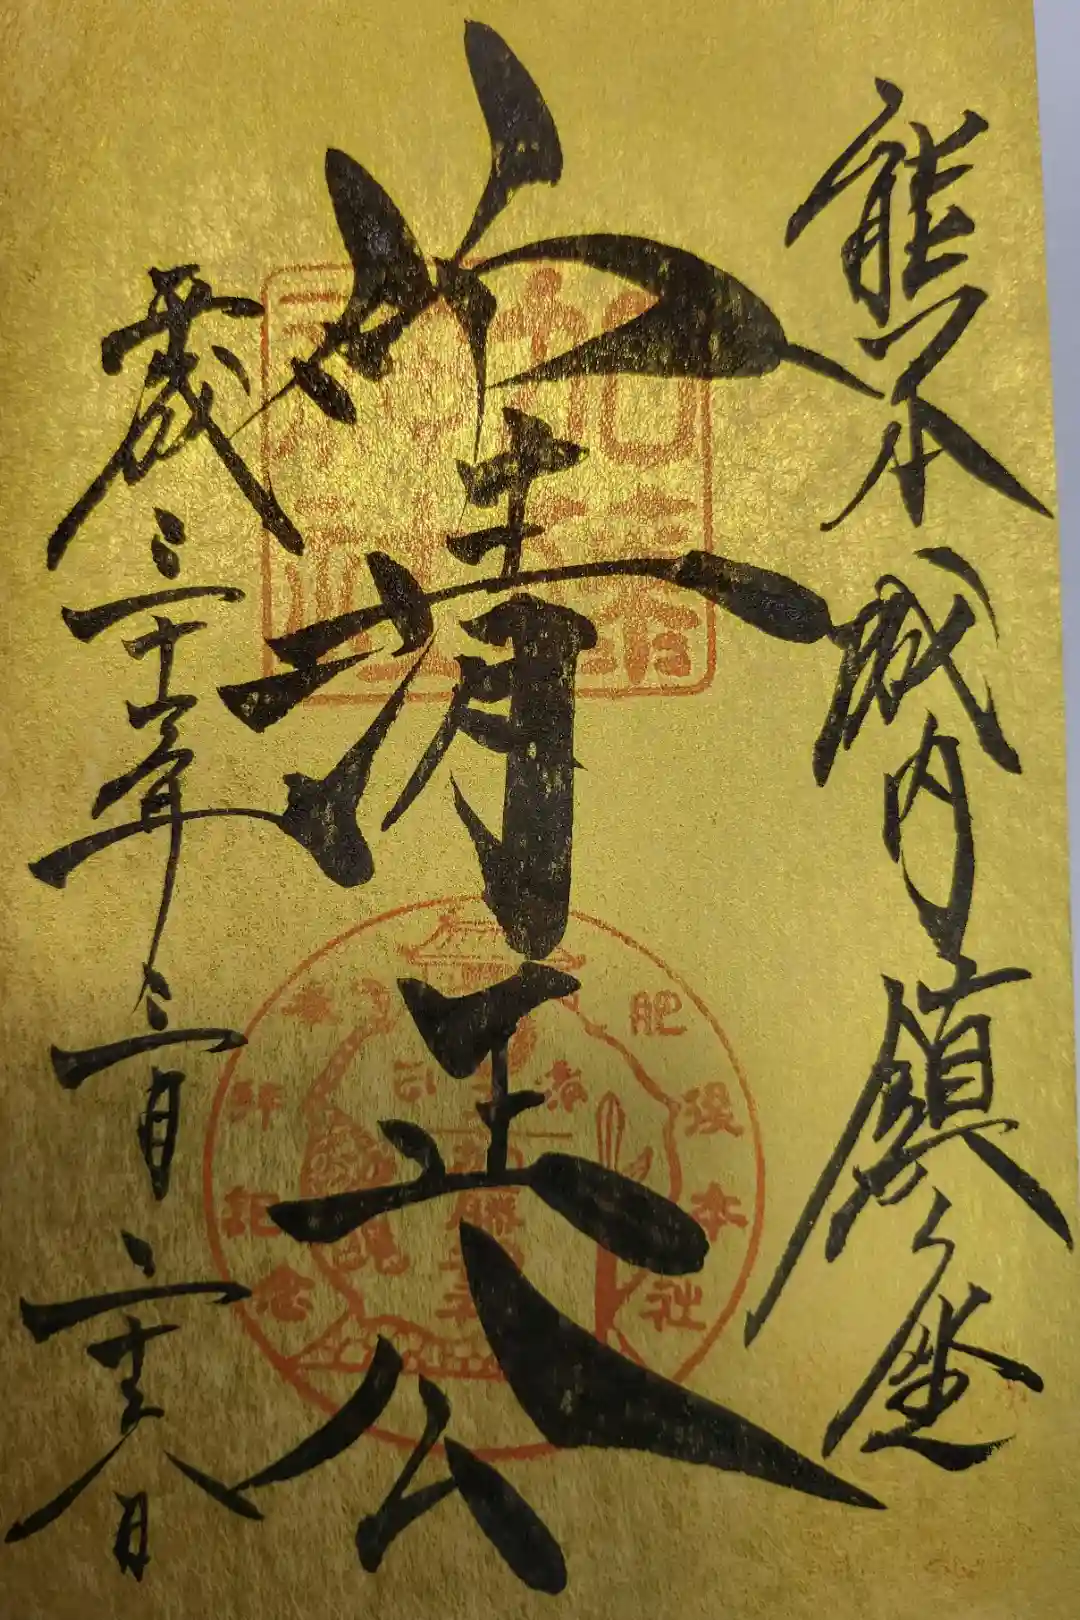 熊本城内鎮座
清正公
平成三十一年三月二十八日
加藤神社
肥後本社
記念